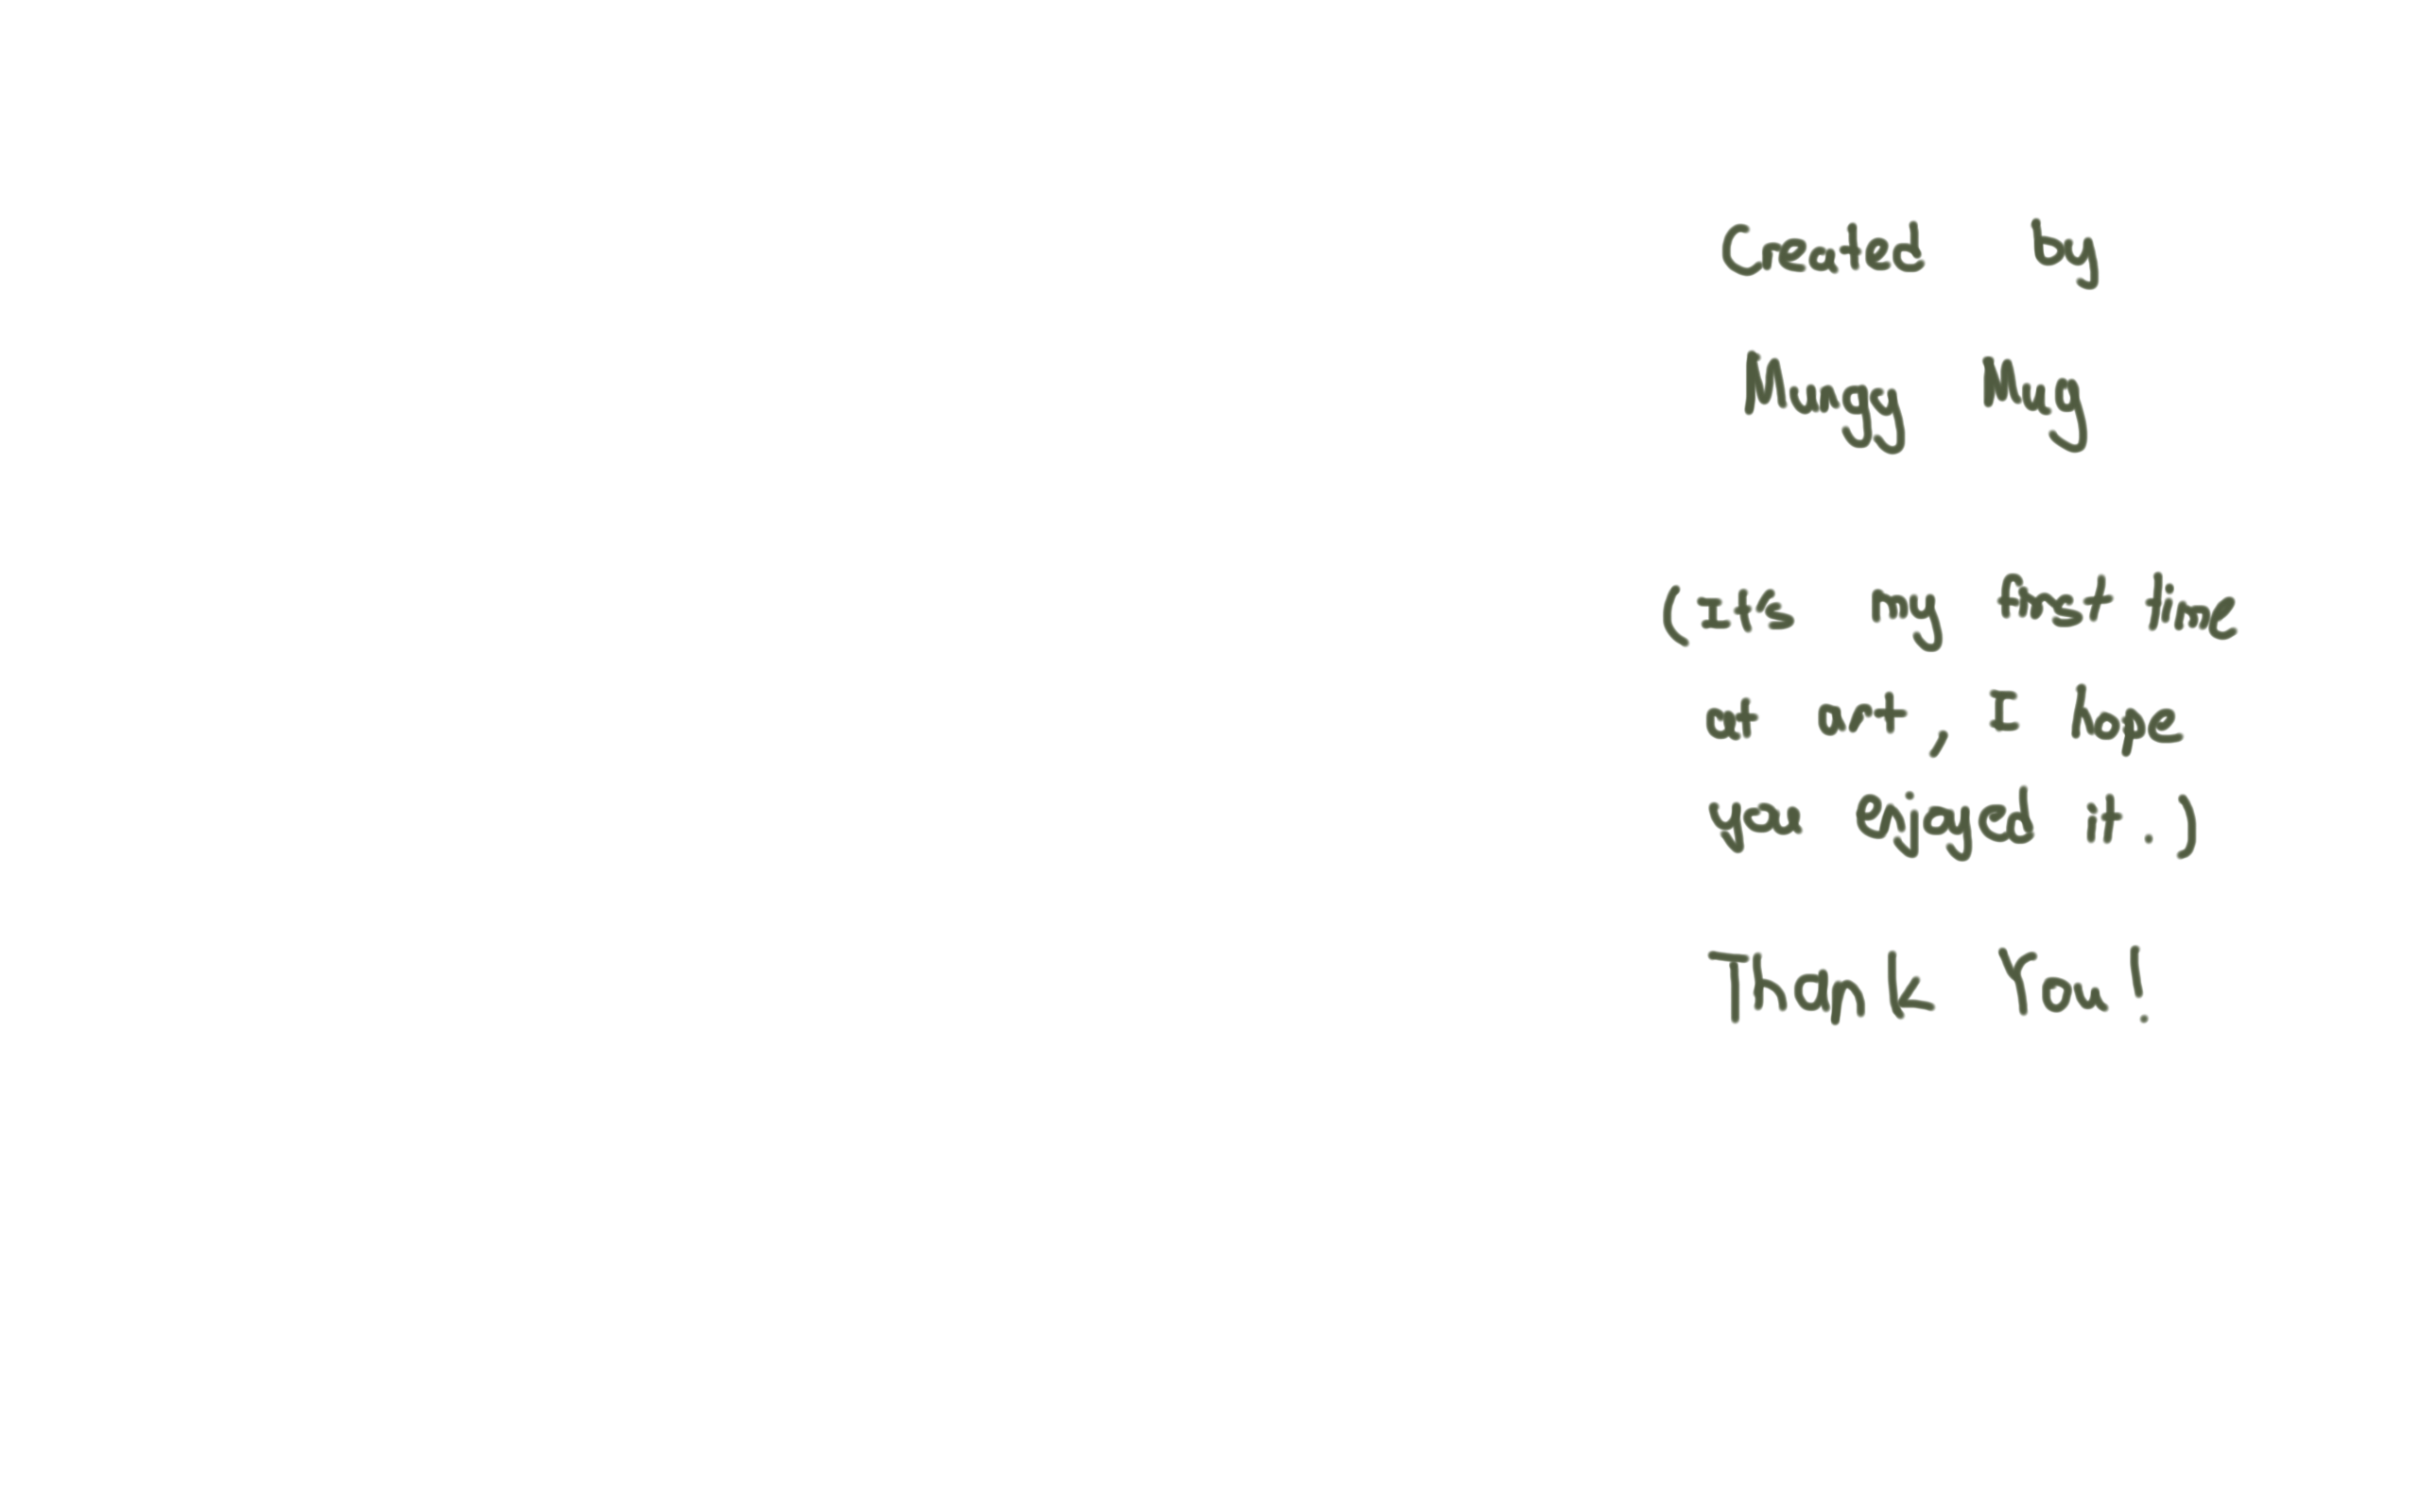 Created by
Mungy Mug
(It's my first time
at art, I hope
you enjoyed it.)
Thank You!